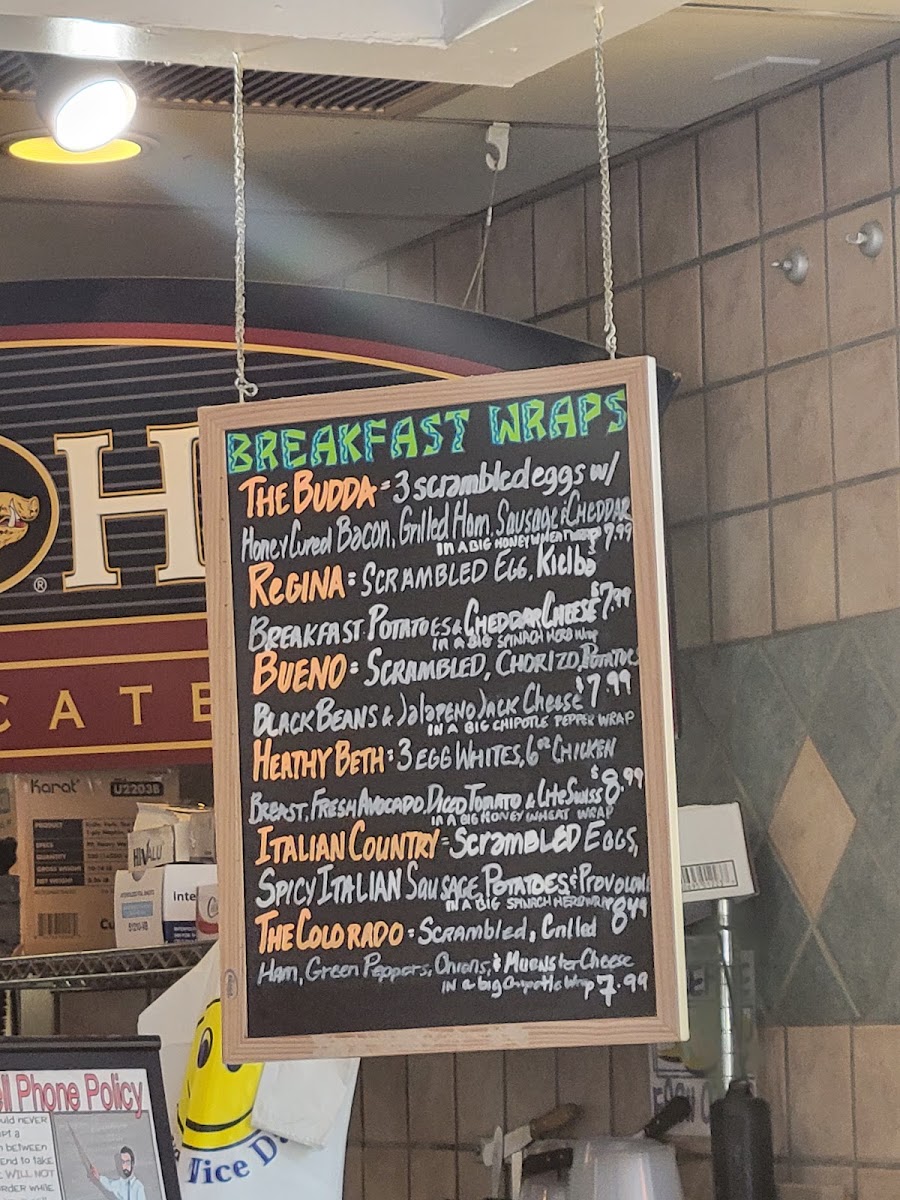 BREAKFAST WRAPS
THE BUDDA = 3 scrambled eggs w/
Honey Cured Bacon, Grilled Ham, Sausage & CHEDDAR
IN A BIG HONEY WHEAT wrap $7.99
REGINA: SCRAMBLED EGG, Kielba
BREAKFAST POTATOES & CHEDDAR CHEESE $7.99
IN A BIG SPINACH HERB Wrap
BUENO: SCRAMBLED, CHORIZO, POTATOES
BLACK BEANS & Jalapeno Jack Cheese $7.99
IN A BIG CHIPOTLE PEPPER WRAP
HEATHY BETH: 3 EGG WHITES, 6oz CHICKEN
BREAST, FRESH AVOCADO, DICED TOMATO & Lite Swiss $8.99
IN A BIG HONEY WHEAT WRAP
ITALIAN COUNTRY = SCRAMBLED EGGS,
SPICY ITALIAN SAUSAGE, POTATOES & PROVOLONE
IN A BIG SPINACH HERB WRAP 8.49
THE COLORADO: Scrambled, Grilled
Ham, Green Peppers, Onions, & Muenster Cheese
IN a big Chipotle Wrap 7.99
H
®
CATE
Karat
U2203B
PRODUCT
SPECS
QUANTITY
GROSS WEIGHT
NET WEIGHT
HIVALU
Inte
ll Phone Policy
uld NEVER
pt a
n between
end to take
WILL NOT
ORDER WHILE
Nice D